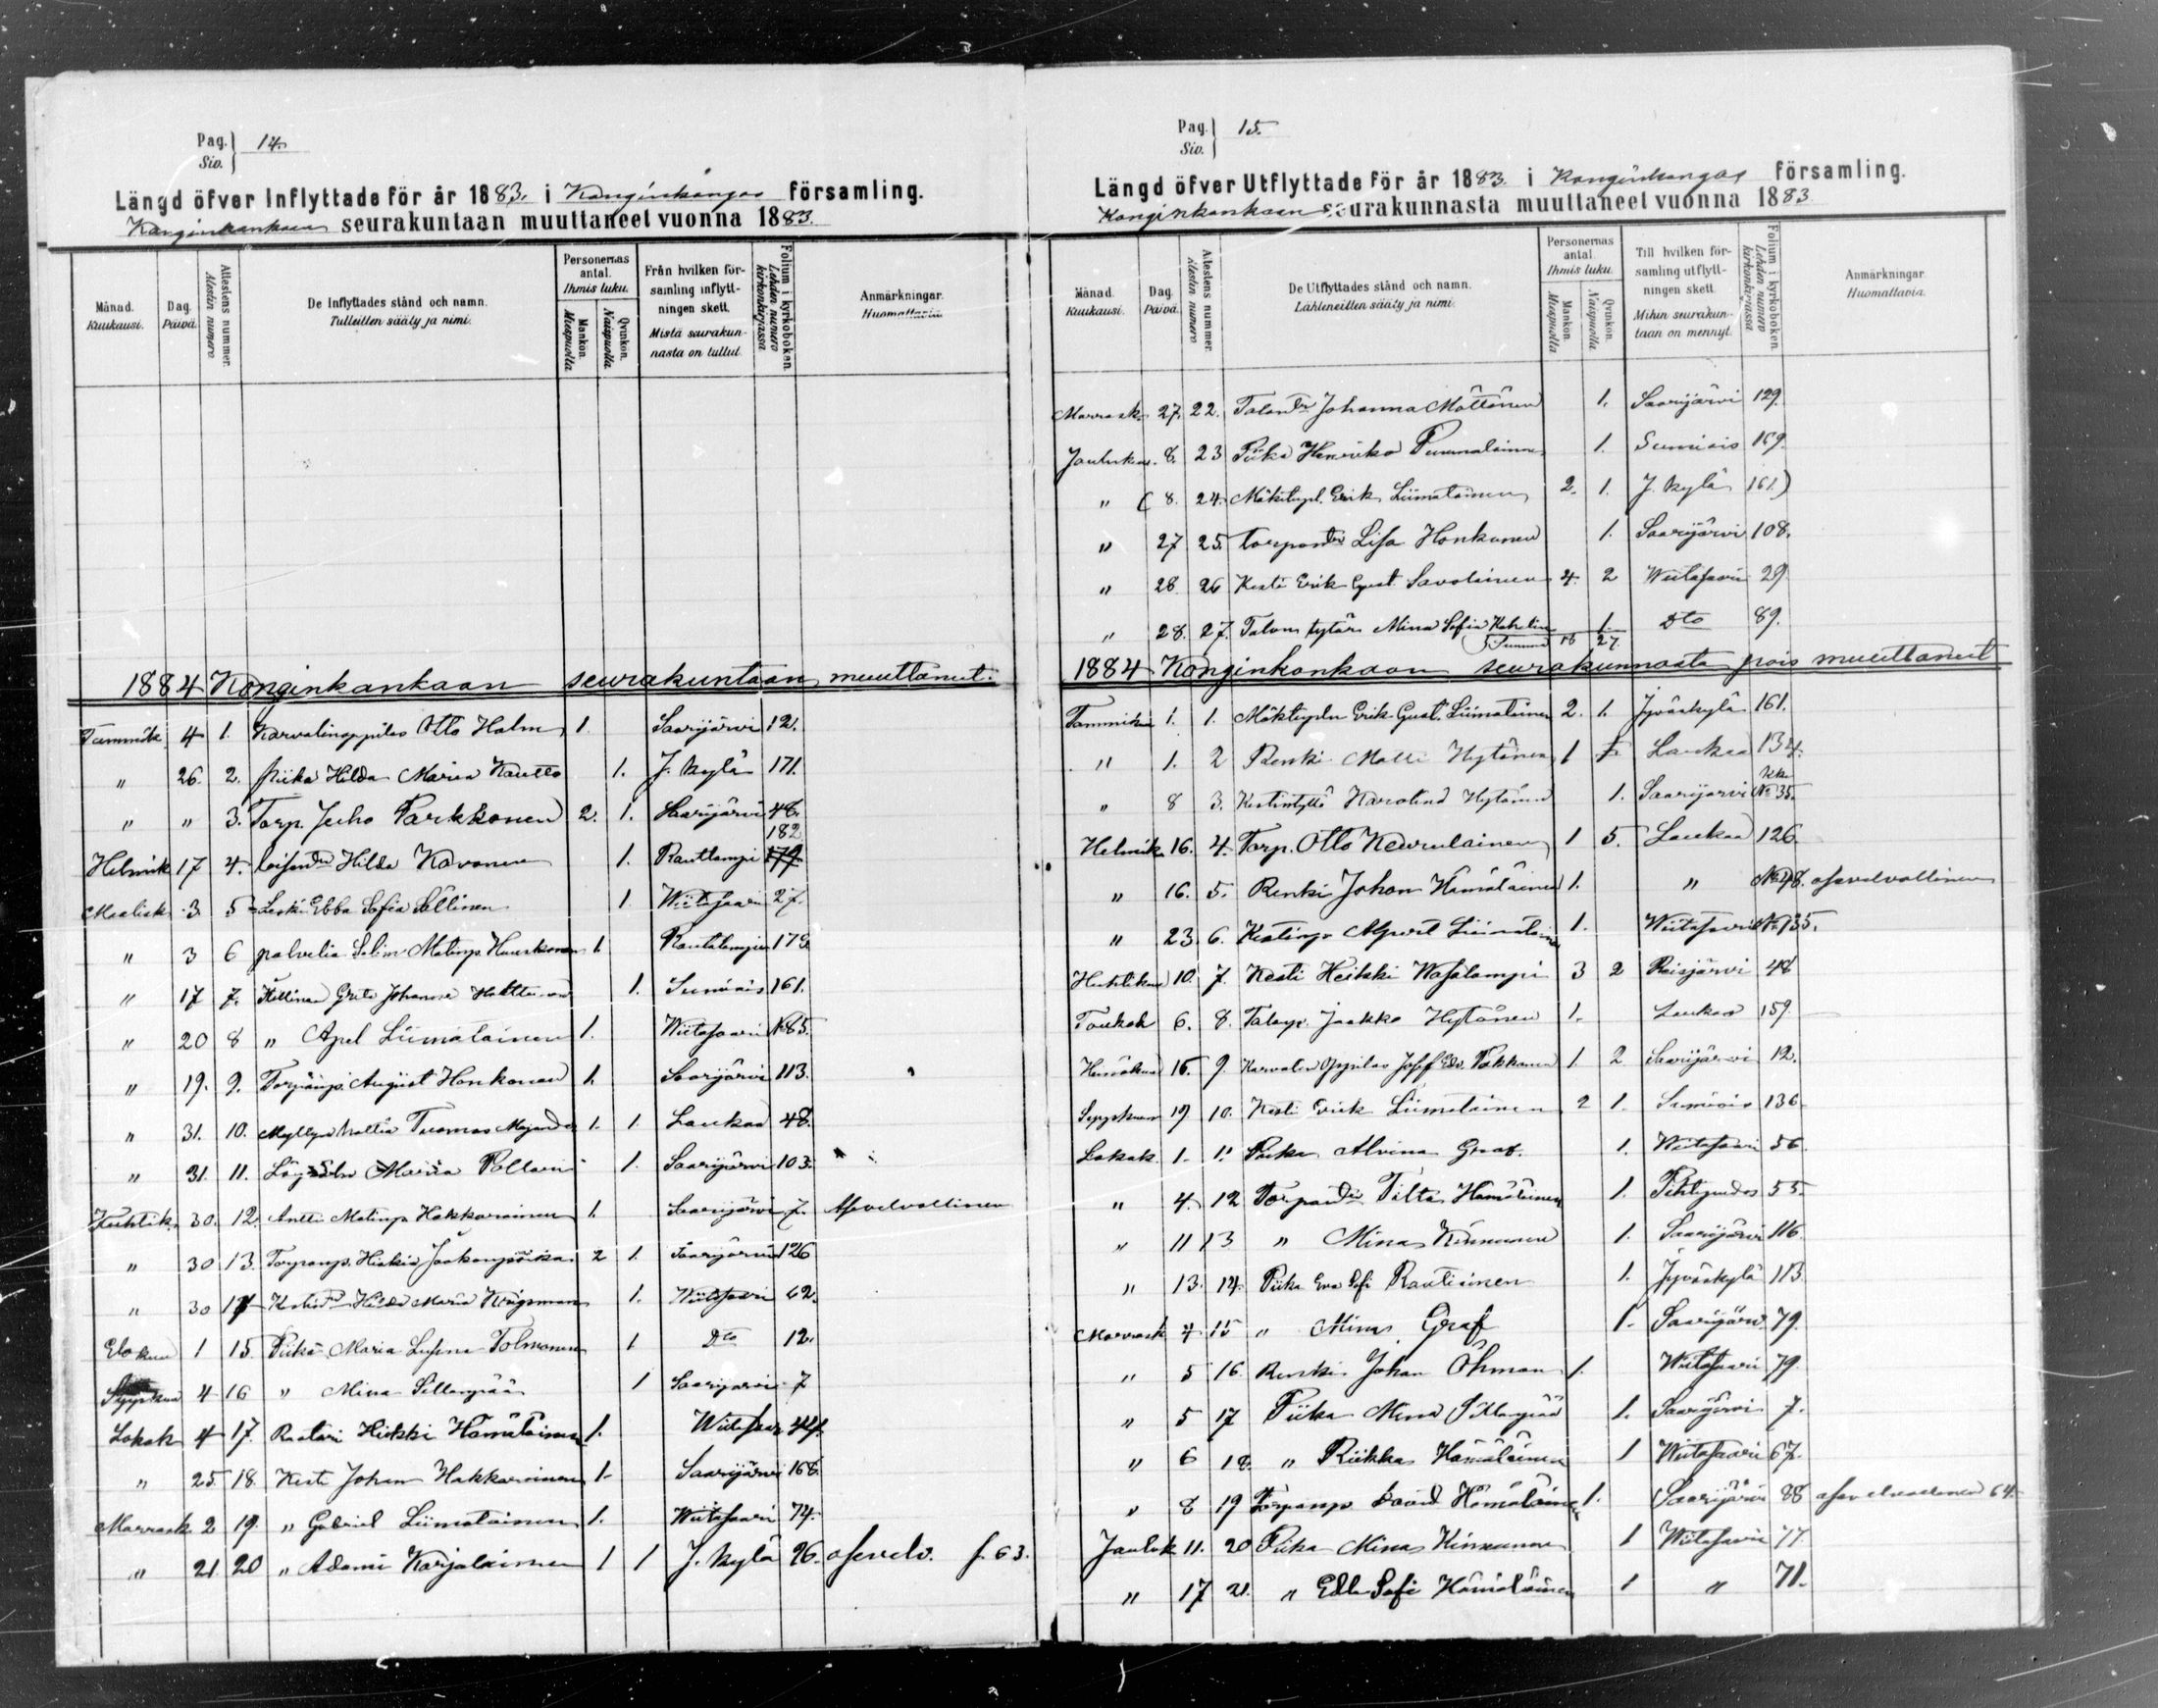 Pag. } 14.
Siv.
Längd öfver Inflyttade för år 1883. i Konginkangas församling.
Konginkankaan seurakuntaan muuttaneet vuonna 1883.
Månad. Kuukausi.
Dag. Päivä.
Attestens nummer. Atestin numero
De Inflyttades stånd och namn. Tulleitten sääty ja nimi.
Personernas antal. Ihmis luku.
Mankön. Miespuolta
Qvinkön. Naispuolta
Från hvilken församling inflyttningen skett. Mistä seurakunnasta on tullut.
Folium i kyrkoboken. Lehden numero kirkonkirjassa
Anmärkningar. Huomattavia.
1884 Konginkankaan seurakuntaan muuttanut.
Tammik. 4 1. Karvalinoppilas Otto Holm 1. Saarijärvi 121.
" 26. 2. piika Hilda Maria Kautto 1. J. kylä 171.
" " 3. Torp. Juho Parkkonen 2. 1. Saarijärvi 48.
182
Helmik 17 4. Hilda Kovonen 1. Rautlampi 179
Maalisk 3 5 Leski Ebba Sofia Sällinen 1 Wiitasaari 27.
" 3 6 palvelia Matinp. 1 Rautalampi 173
" 17 7. Itellinen Greta Johanna 1. Sumiais 161.
" 20 8 " Apel Liimatainen 1. Wiitasaari N:o 85.
" 19. 9. Torpanp. August Honkonen 1. Saarijärvi 113.
" 31. 10. Tuomas 1. 1. Laukaa 48.
" 31. 11. Maria 1. Saarijärvi 103.
Huhtik. 30. 12. Antti Matinp. Hakkarainen 1. Saarijärvi 7. Asevelvollinen
" 30 13. Torpanp. 2 1. Saarijärvi 126
" 30 14 Hilda Maria 1. Wiitasaari 62.
Elokuu 1 15. Piika Maria Tolmonen 1 Dto 12.
Syyskuu 4 16 " Mina Sillanpää 1 Saarijärvi 7
Lokak 4 17. Raatari Heikki Hämäläinen 1. Wiitasaar 44.
" 25. 18. Kesti Johan Hakkarainen 1. Saarijärvi 168.
Marrask 2 19. " Gabriel Liimatainen 1. Wiitasaari 74.
" 21. 20 " Adami Karjalainen 1 1 J. kylä 26. asevelv. f. 63.
Pag. } 15.
Siv.
Längd öfver Utflyttade för år 1883. i Konginkangas församling.
Konginkankaan seurakunnasta muuttaneet vuonna 1883
Månad. Kuukausi.
Dag. Päivä.
Attestens nummer. Atestin numero
De Utflyttades stånd och namn. Lähteneitten sääty ja nimi.
Personernas antal. Ihmis luku.
Mankön. Miespuolta
Qvinkön. Naispuolta
Till hvilken församling utflyttningen skett. Mihin seurakuntaan on mennyt.
Folium i kyrkoboken. Lehden numero kirkonkirjassa
Anmärkningar. Huomattavia.
Marrask. 27. 22. Johanna Möttönen 1. Saarijärvi 129.
Joulukuu. 8. 23 Piika Henrika Pummalainen 1. Sumiais 169.
" ( 8. 24. Mäkitupl. Erik Liimatainen 2. 1. J. kylä 161.)
" 27 25. Lisa Honkonen 1. Saarijärvi 108.
" 28. 26 Kesti Erik Gust. Savolainen 4. 2 Wiitasaari 29.
" 28. 27. Talon tytär Mina Sofia 1. Dto 89.
Summa 16 27.
1884 Konginkankaan seurakunnasta pois muuttaneet
Tammik. 1. 1. Erik Gust. Liimatainen 2. 1. Jyväskylä 161.
" 1. 2 Renki Matti Hytönen 1 Laukaa 134.
" 8 3. Kestintyttö Karolina Hytönen 1. Saarijärvi N:o 35.
Helmik. 16. 4. Torp. Otto Keurulainen 1 5. Laukaa 126.
" 16. 5. Renki Johan Hämäläinen 1. " asevelvollinen
" 23. 6. Kestinp. Liimatainen 1. Wiitasaari N:o 135.
Huhtikuu 10. 7. Kesti Heikki Wasalampi 3 2 Reisjärvi 48
Toukok 6. 8. Talonp. Jaakko Hytönen 1. Laukaa 159.
15. 9. Karvalin Oppilas 1. 2 Saarijärvi 12.
Syyskuun 19 10. Kesti Erik Liimatainen 2 1. Sumiais 136
Lokak. 1. 11 Piika Alvina Graf. 1. Wiitasaari 56.
" 4. 12 Hämäläinen 1. Pihtipudas 55.
" 11 13 " Mina Kinnunen 1. Saarijärvi 116.
" 13. 14. Piika Eva Sofi Rautiainen 1. Jyväskylä 113.
Marrask 4 15 " Mina Graf 1. Saarijärvi 79.
" 5 16. Renki Johan Öhman 1. Wiitasaari 79.
" 5 17 Piika Mina Sillanpää 1. Saarijärvi 7.
" 6 18. " Riikka Hämäläinen 1 Wiitasaari 67.
" 8 19 Torpanp. David Hämäläinen 1. Saarijärvi 88 asevelvollinen 64.
Jouluk 11. 20 Piika Mina Kinnunen 1 Wiitasaari 77.
" 17 21. " Edla Sofi Hämäläinen 1 " 71.